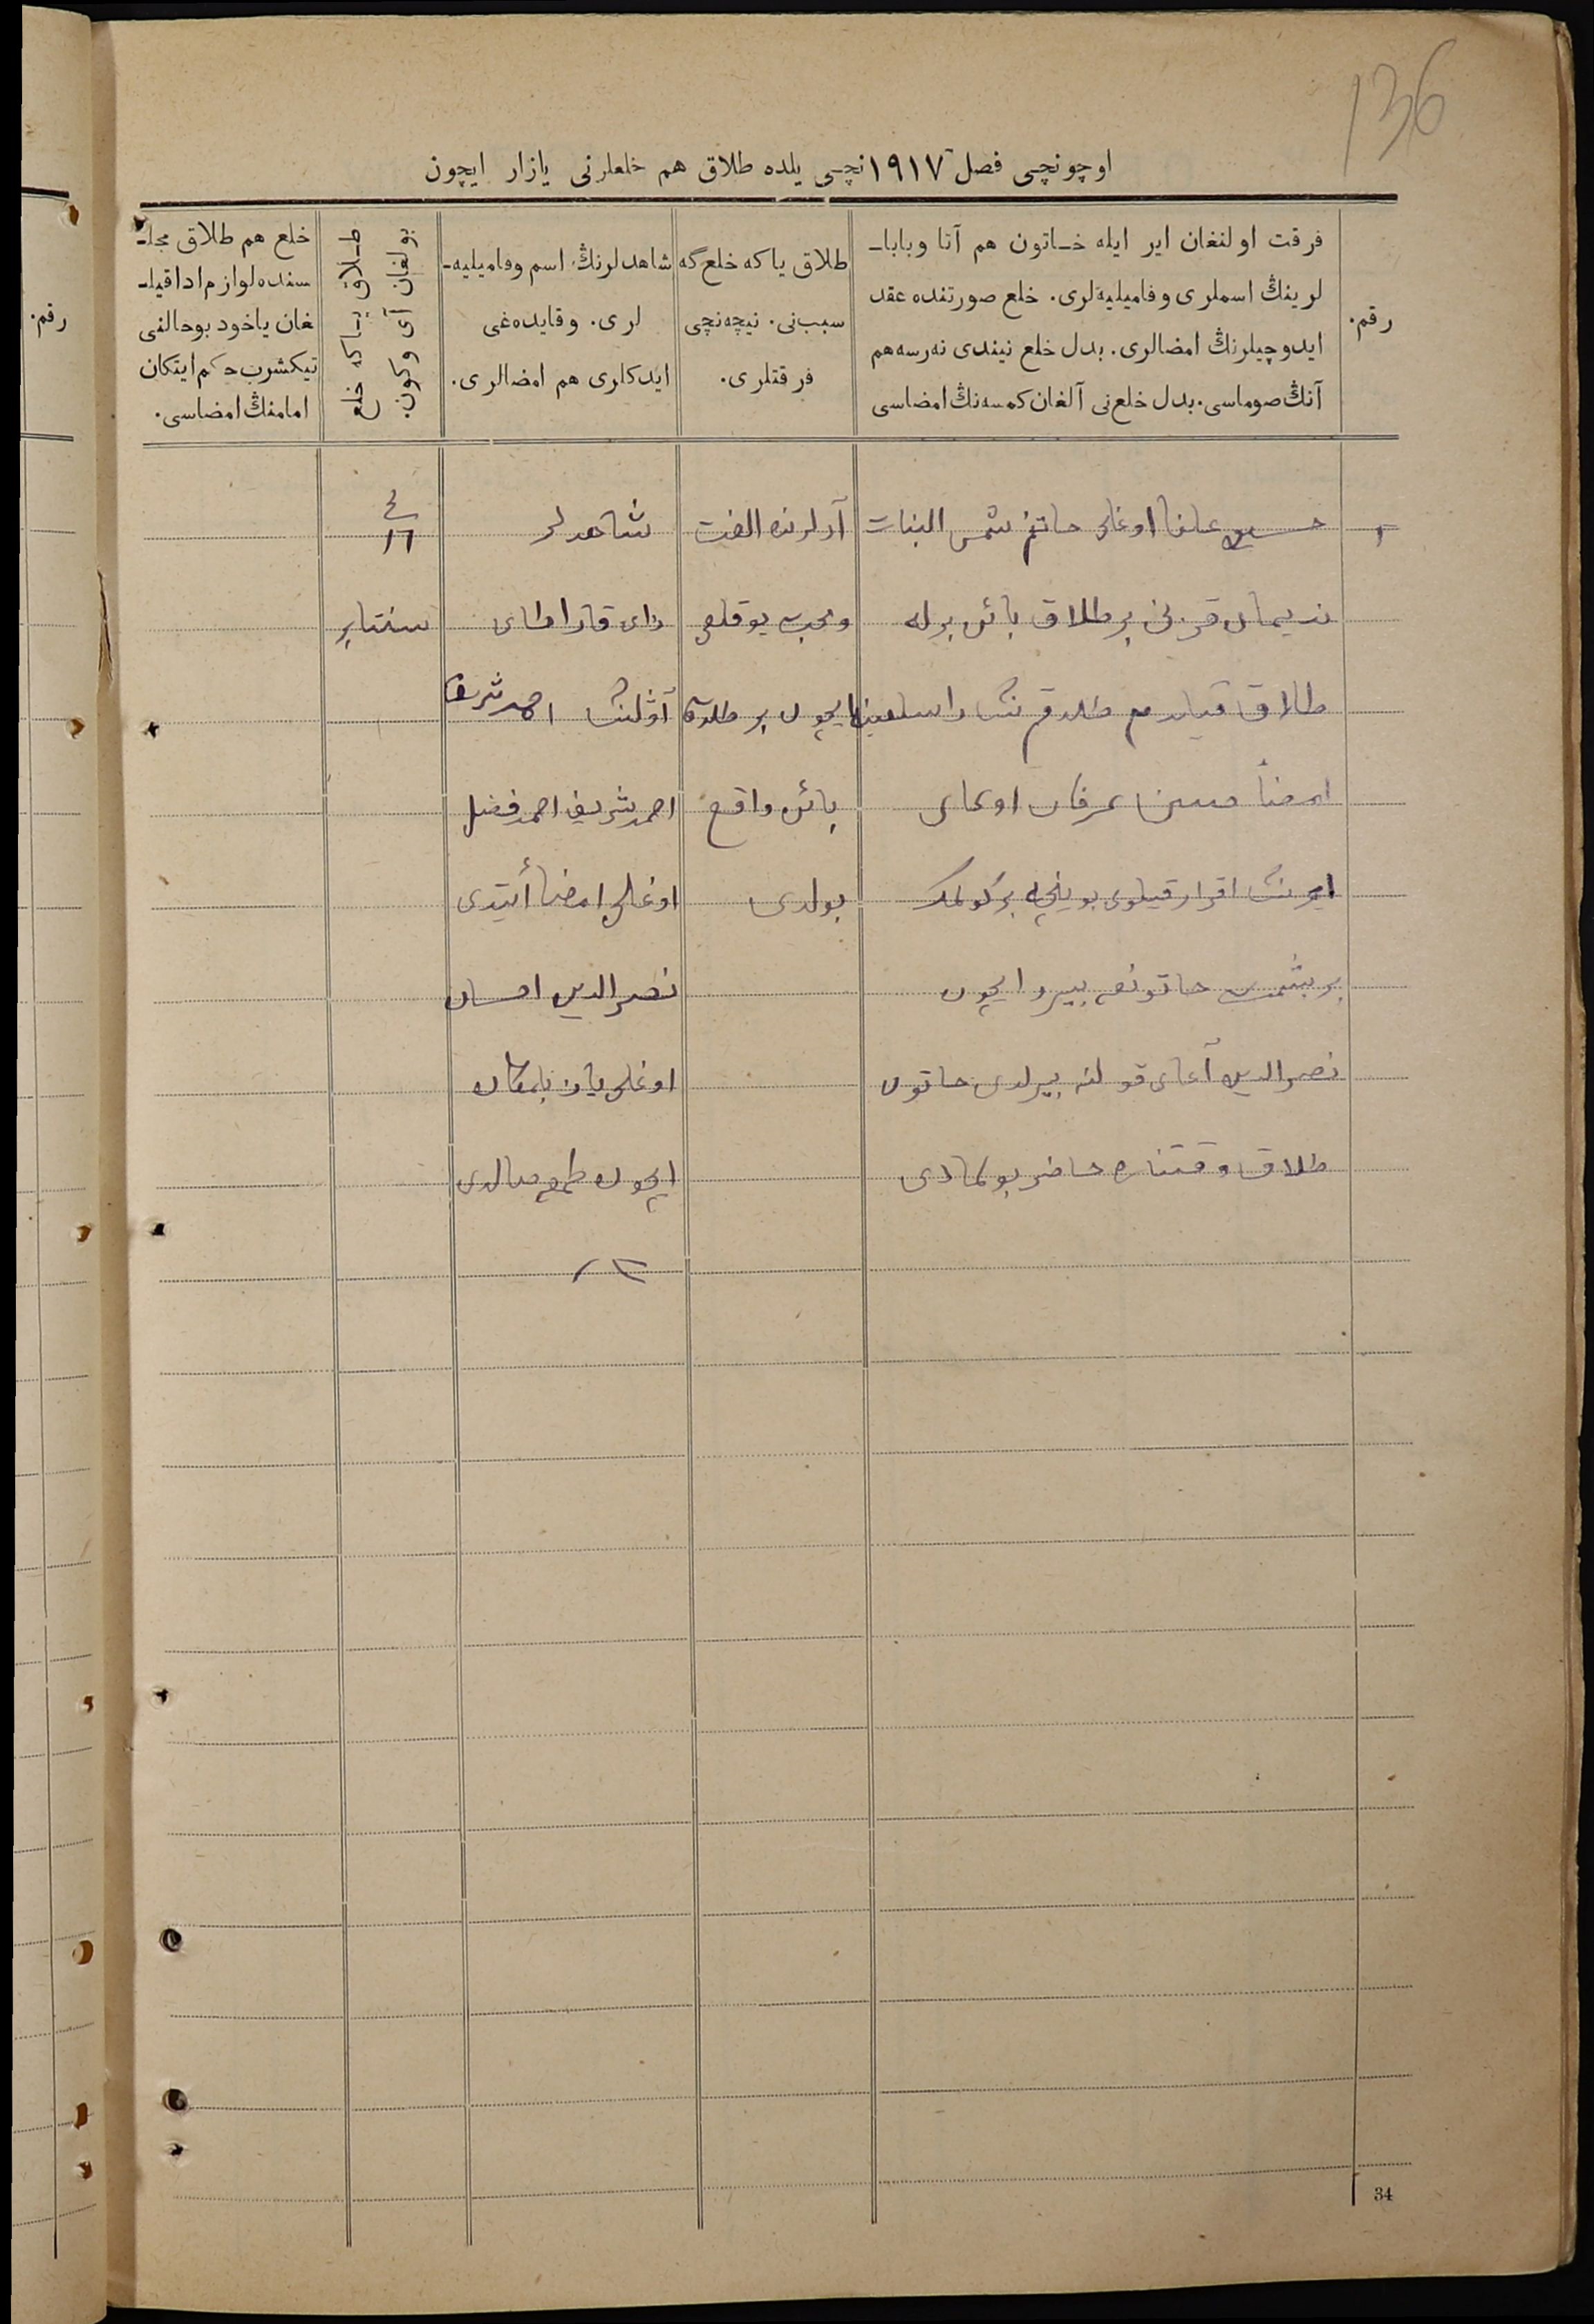 136
اوچونچی فصل ١٩١٧نچی یلده طلاق هم خلعلرنی یازار ایچون
رقم.
فرقت اولنغان ایر ایله خاتون هم آتا وبابا-
لرینڭ اسملری وفامیلیەلری. خلع صورتنده عقد
ایدوچیلرنڭ امضالری. بدل خلع نیندی نەرسە هم
آنڭ صوماسی. بدل خلعنی آلغان کمسەنڭ امضاسی
طلاق یاکە خلع گە
سببنی. نیچەنچی
فرقتلری.
شاهدلرنڭ اسم وفامیلیە-
لری. وقایدەغی
ایدکلری هم امضالری.
طلاق یاکە خلع
بولغان آی وکون.
خلع هم طلاق مجلـ
سنده لوازم ادا قیلـ
غان یاخود بوحالنی
تیکشرب حکم ایتکان
امامنڭ امضاسی.
اوغلی خاتنم شمس البنات
بر طلاق بائن برله
طلاق قیلدم
امضا حسین اوغلی
ایرنڭ اقرار قیلوی بوینچه بر کولمک
بر خاتونغه بیرو ایچون
نصرالدین آغای قولنه بیرلدی خاتون
طلاق وقتنده حاضر بولمادی
آرالرنده الفت
ومحبت یوقلغی
ایچون بر طلاق
بائن واقع
بولدی
شاهدلر
آولنڭ احمدشریف
احمدشریف احمد فضل
اوغلی امضا ایتدی
نصرالدین احسان
اوغلی یازا بلمگان
ایچون طمغه صالدی
١٦
سنتابر
رقم.
34